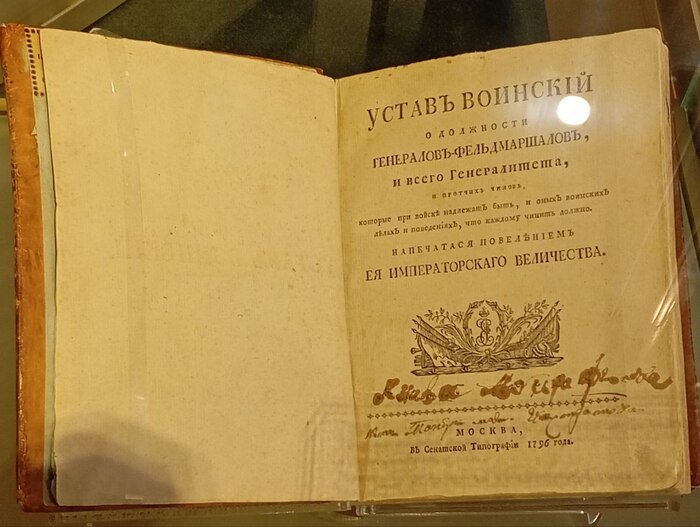 УСТАВЪ ВОИНСКІЙ
О ДОЛЖНОСТИ
ГЕНЕРАЛОВЪ-ФЕЛЬДМАРШАЛОВЪ,
И ВСЕГО ГЕНЕРАЛИТЕТА,
И ПРОТЧИХЪ ЧИНОВЪ,
которые при войскѣ надлежатъ быть, и оныхъ воинскихъ
дѣлахъ и поведеніяхъ, что каждому чинить должно.
НАПЕЧАТАСЯ ПОВЕЛѢНІЕМЪ
ЕЯ ИМПЕРАТОРСКАГО ВЕЛИЧЕСТВА.
МОСКВА,
Въ Сенатской Типографіи 1796 года.